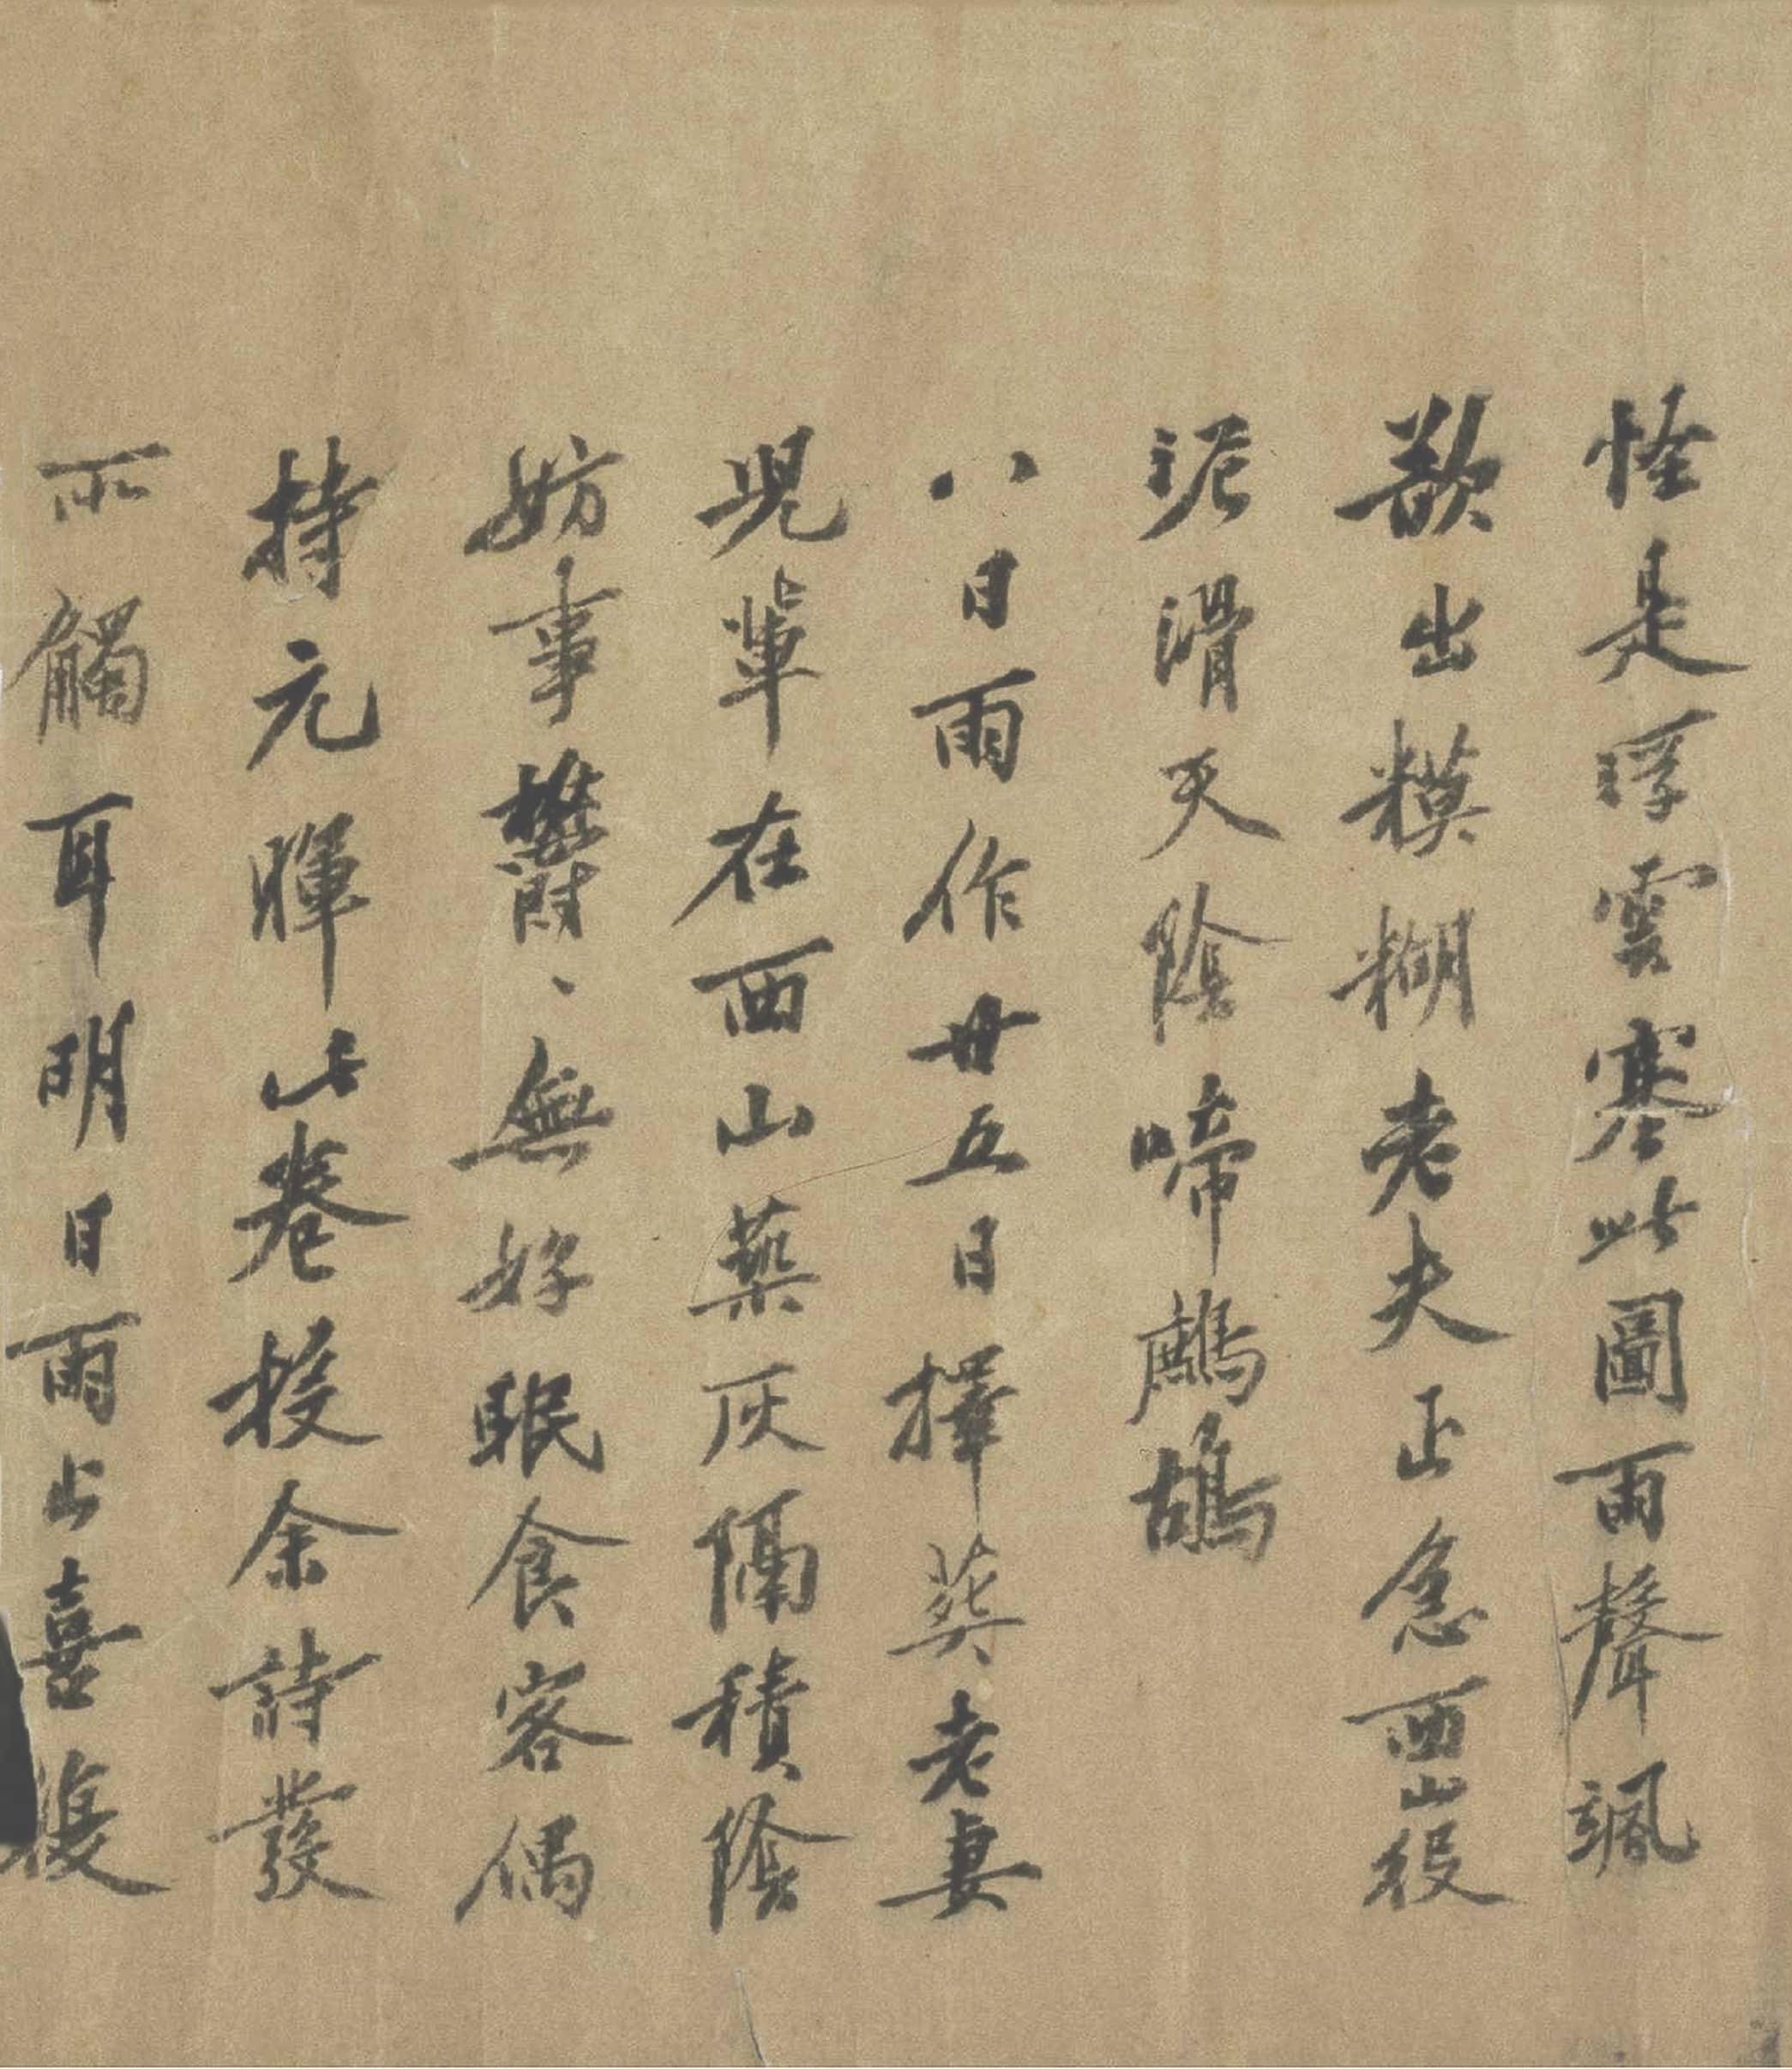 怪是浮雲塞此圖雨聲颯
歘出模糊老夫正急西山役
泥滑天陰啼鷓鴣
八日雨作廿五日擇葬老妻
兒輩在西山築灰隔積陰
妨事鬱、無好眠食客偶
持元暉此卷投余詩發
所觸耳明日雨止喜復